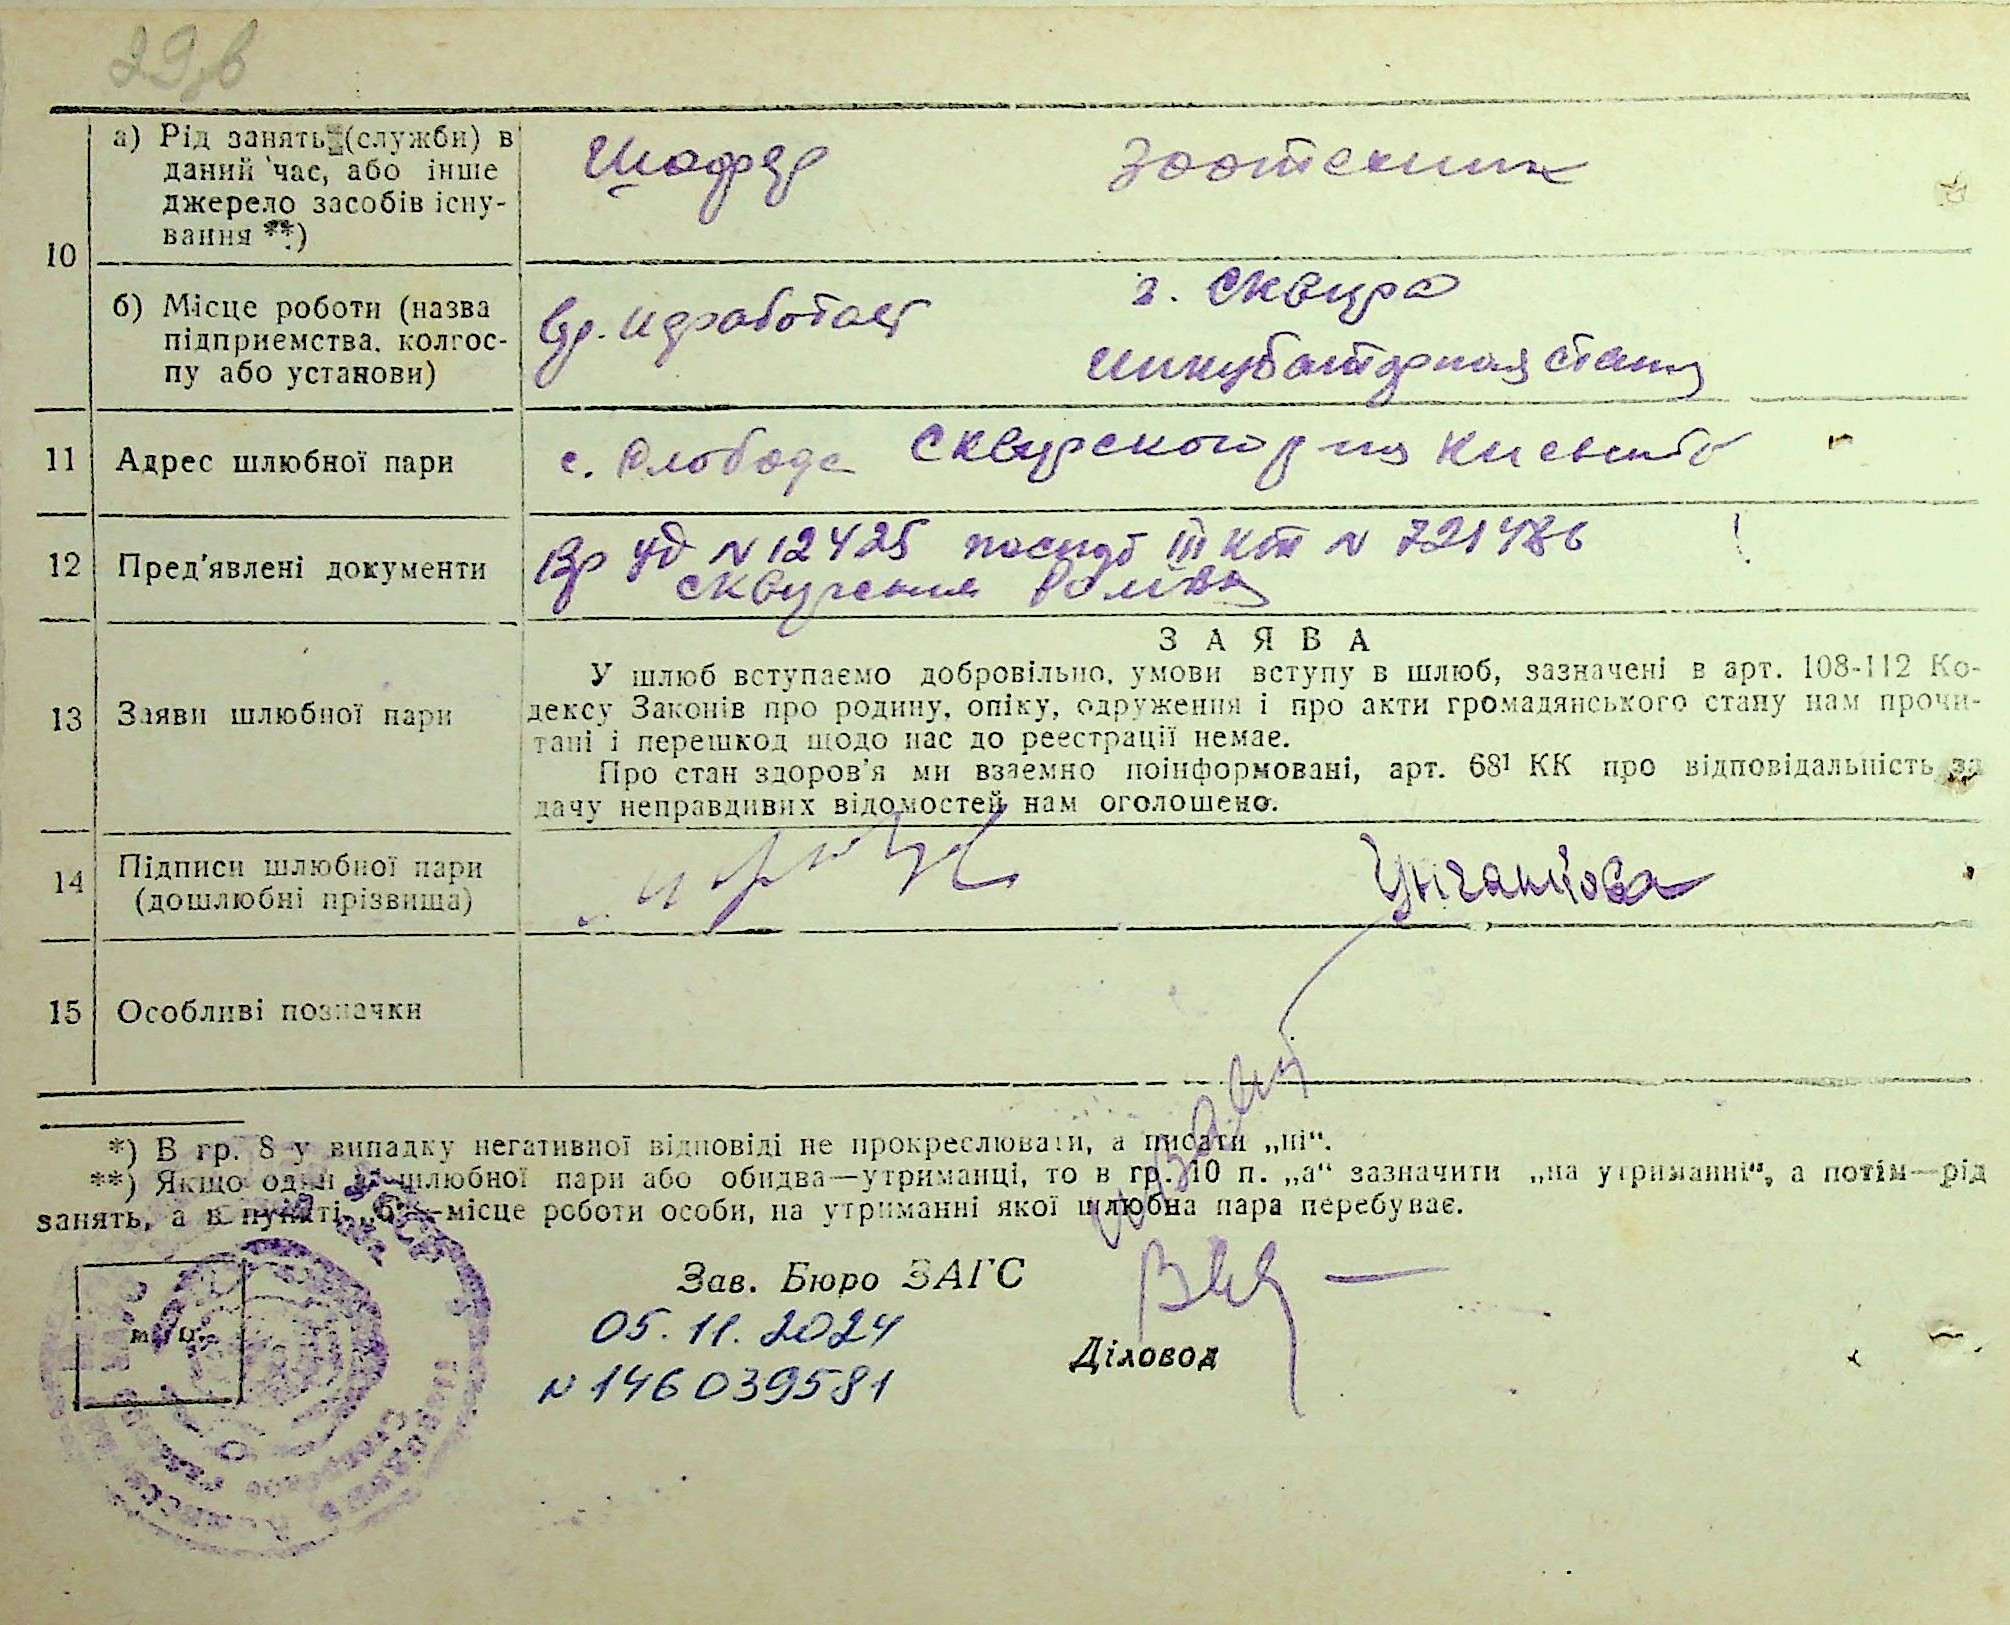 а) Рід занять (служби) в
даний час, або інше
джерело засобів існу-
вання **)
Шофер
зоотехник
10
б) Місце роботи (назва
підприємства, колгос-
пу або установи)
вр. н работает
г. Сквира
Инкубаторная станц
11
Адрес шлюбної пари
с. Слобода Сквирского р на
12
Пред'явлені документи
Вр уд N 12425 паспорт III
N 721486
13
Заяви шлюбної пари
ЗАЯВА
У шлюб вступаємо добровільно, умови вступу в шлюб, зазначені в арт. 108-112 Ко-
дексу Законів про родину, опіку, одруження і про акти громадянського стану нам прочи-
тані і перешкод щодо нас до реєстрації немає.
Про стан здоров'я ми взаємно поінформовані, арт. 68¹ КК про відповідальність за
дачу неправдивих відомостей нам оголошено.
14
Підписи шлюбної пари
(дошлюбні прізвища)
Цыганкова
15
Особливі позначки
*) В гр. 8 у випадку негативної відповіді не прокреслювати, а писати „ні“.
**) Якщо один із шлюбної пари або обидва—утриманці, то в гр. 10 п. „а“ зазначити „на утриманні“, а потім—рід
занять, а в пункті „б“—місце роботи особи, на утриманні якої шлюбна пара перебуває.
м. п.
Зав. Бюро ЗАГС
05.11.2024
N 146039581
Діловод